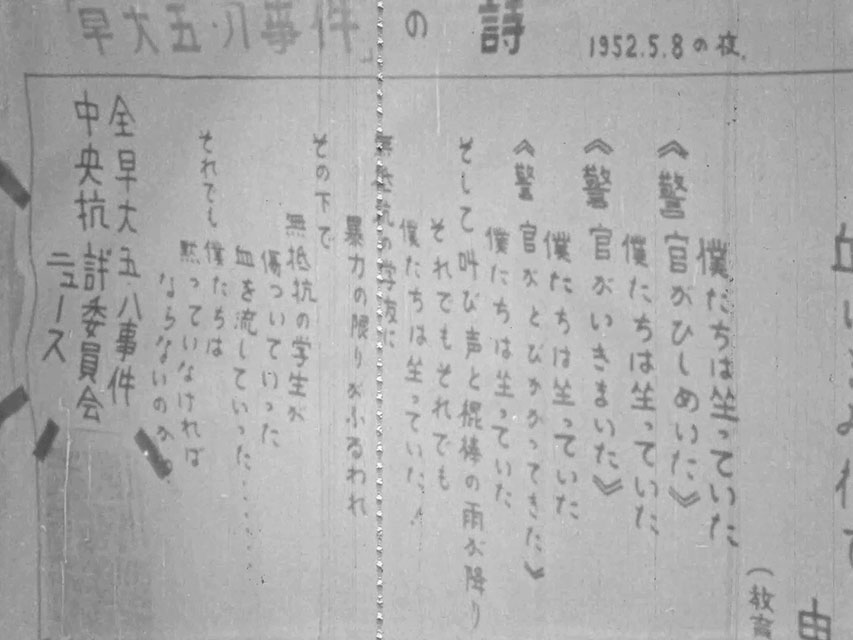 「早大五・八事件」の詩 1952.5.8の夜
僕たちは坐っていた
《警官がひしめいた》
僕たちは坐っていた
《警官がいきまいた》
僕たちは坐っていた
《警官がとびかかってきた》
僕たちは坐っていた
そして叫び声と棍棒の雨が降り
それでもそれでも
僕たちは坐っていた！
無抵抗の学友に
暴力の限りがふるわれ
その下で
無抵抗の学生が
傷ついていった
血を流していった……
それでも僕たちは
黙っていなければ
ならないのか。
全早大五・八事件
中央抗議委員会
ニュース
（教育